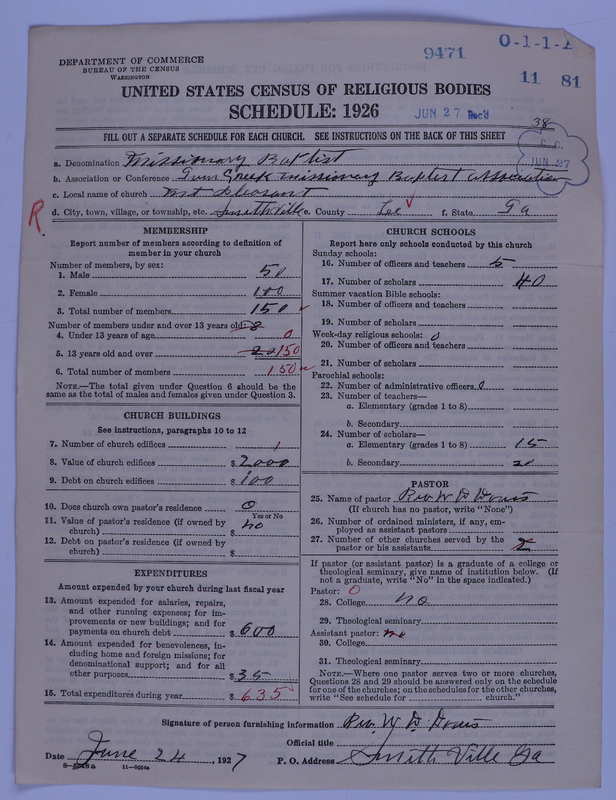 DEPARTMENT OF COMMERCE
BUREAU OF THE CENSUS
WASHINGTON
9471
O-1-1-
11 81
UNITED STATES CENSUS OF RELIGIOUS BODIES
SCHEDULE: 1926
JUN 27 Rec'd
38
FILL OUT A SEPARATE SCHEDULE FOR EACH CHURCH. SEE INSTRUCTIONS ON THE BACK OF THIS SHEET
JUN 27
a. Denomination Missionary Baptist
b. Association or Conference missionary Baptist association
c. Local name of church Mt Pleasant
d. City, town, village, or township, etc. Smithville e. County Lee f. State Ga
R
MEMBERSHIP
Report number of members according to definition of
member in your church
Number of members, by sex:
1. Male 50
2. Female 100
3. Total number of members 150
Number of members under and over 13 years old:
4. Under 13 years of age 0
5. 13 years old and over 20 150
6. Total number of members 150
NOTE.—The total given under Question 6 should be the
same as the total of males and females given under Question 3.
CHURCH BUILDINGS
See instructions, paragraphs 10 to 12
7. Number of church edifices 1
8. Value of church edifices $ 2000
9. Debt on church edifices $ 100
10. Does church own pastor's residence 0
Yes or No
11. Value of pastor's residence (if owned by
church) $ no
12. Debt on pastor's residence (if owned by
church) $
EXPENDITURES
Amount expended by your church during last fiscal year
13. Amount expended for salaries, repairs,
and other running expenses; for im-
provements or new buildings; and for
payments on church debt $ 600
14. Amount expended for benevolences, in-
cluding home and foreign missions; for
denominational support; and for all
other purposes $ 35
15. Total expenditures during year $ 635
CHURCH SCHOOLS
Report here only schools conducted by this church
Sunday schools:
16. Number of officers and teachers 5
17. Number of scholars 40
Summer vacation Bible schools:
18. Number of officers and teachers
19. Number of scholars
Week-day religious schools: 0
20. Number of officers and teachers
21. Number of scholars
Parochial schools:
22. Number of administrative officers 0
23. Number of teachers—
a. Elementary (grades 1 to 8)
b. Secondary
24. Number of scholars—
a. Elementary (grades 1 to 8) 15
b. Secondary 20
PASTOR
25. Name of pastor Rev. W. D.
(If church has no pastor, write "None")
26. Number of ordained ministers, if any, em-
ployed as assistant pastors
27. Number of other churches served by the
pastor or his assistants 2
If pastor (or assistant pastor) is a graduate of a college or
theological seminary, give name of institution below. (If
not a graduate, write "No" in the space indicated.)
Pastor: 0
28. College no
29. Theological seminary
Assistant pastor: no
30. College
31. Theological seminary
NOTE.—Where one pastor serves two or more churches,
Questions 28 and 29 should be answered only on the schedule
for one of the churches; on the schedules for the other churches,
write "See schedule for church."
Signature of person furnishing information Rev. W. D.
Official title
Date June 24, 1927 P. O. Address Smith Ville Ga